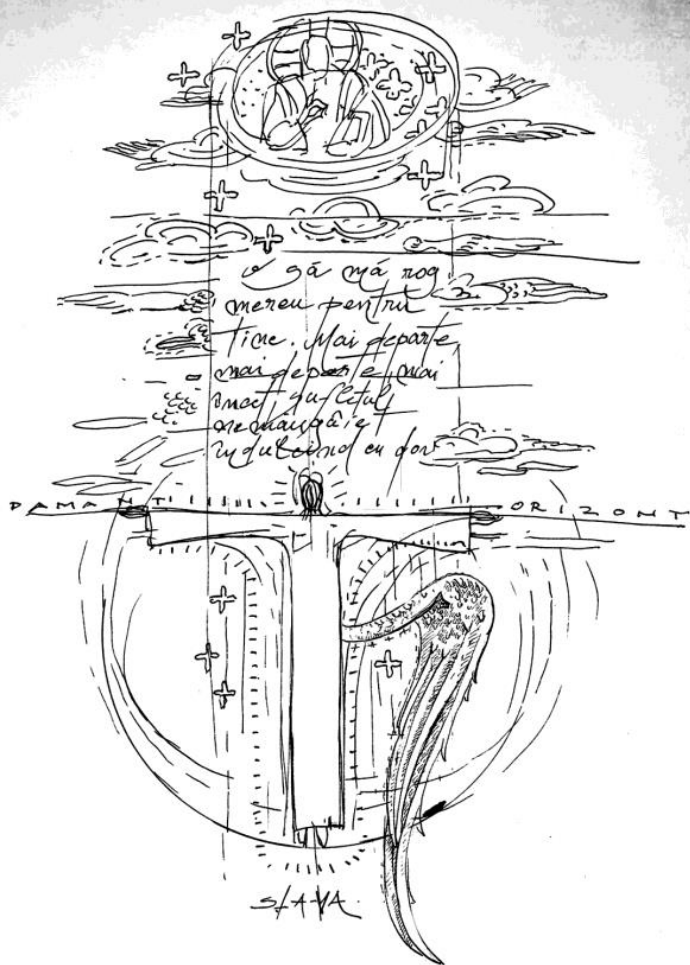 să mă rog
mereu pentru
tine. Mai departe
mai departe, mai
încet, sufletul
nemângâiet
îndulcind cu dor
DAMANT ORIZONT
SLAVA